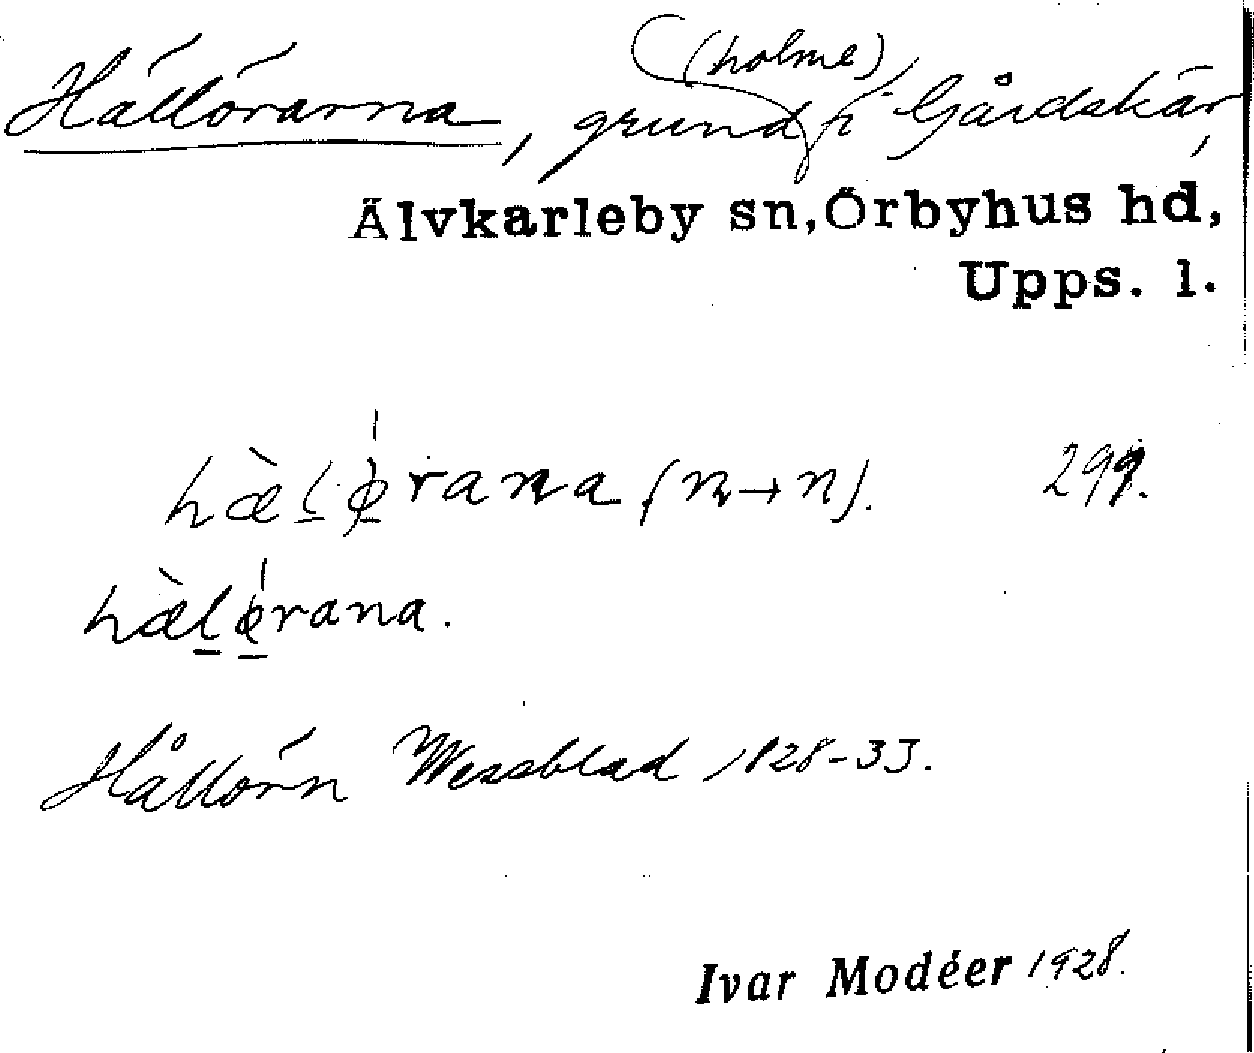 Hällörarna, grund (holme) i Gårdskär,
Älvkarleby sn, Örbyhus hd,
Upps. l.
hæ̀l̠ǿ̠rana (n→n). 299.
hæ̀l̠ǿ̠rana.
Hållörn Wessblad 1828-33.
Ivar Modéer 1928.